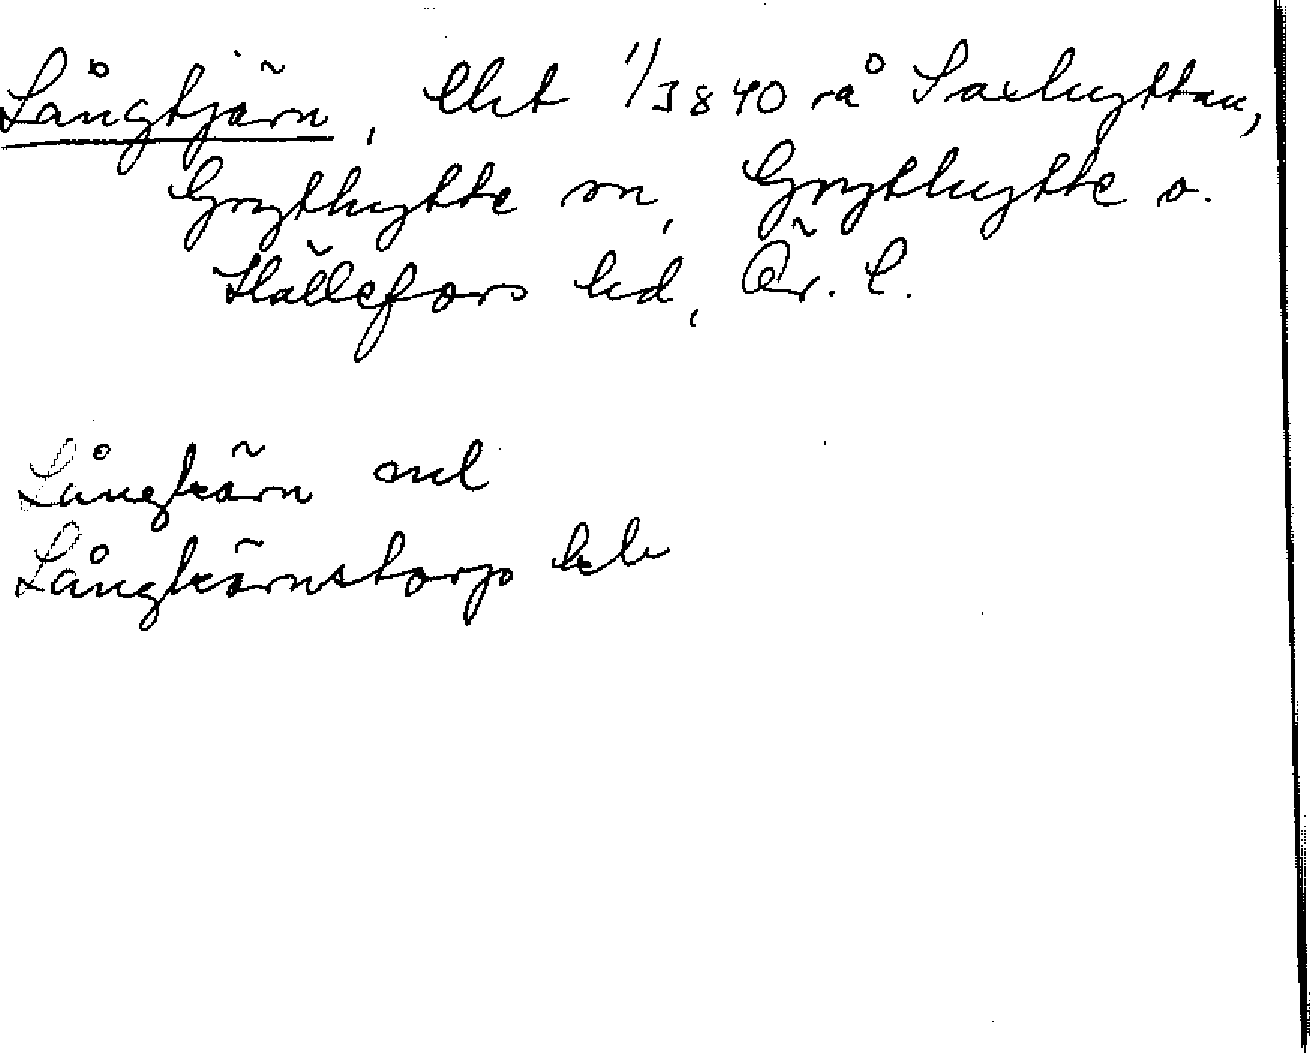 Långtjärn, lht 1/3840 rå Saxhyttan,
Grythytte sn, Grythytte o.
Hällefors hd, Ör. l.
Långkärn
Långkärnstorp